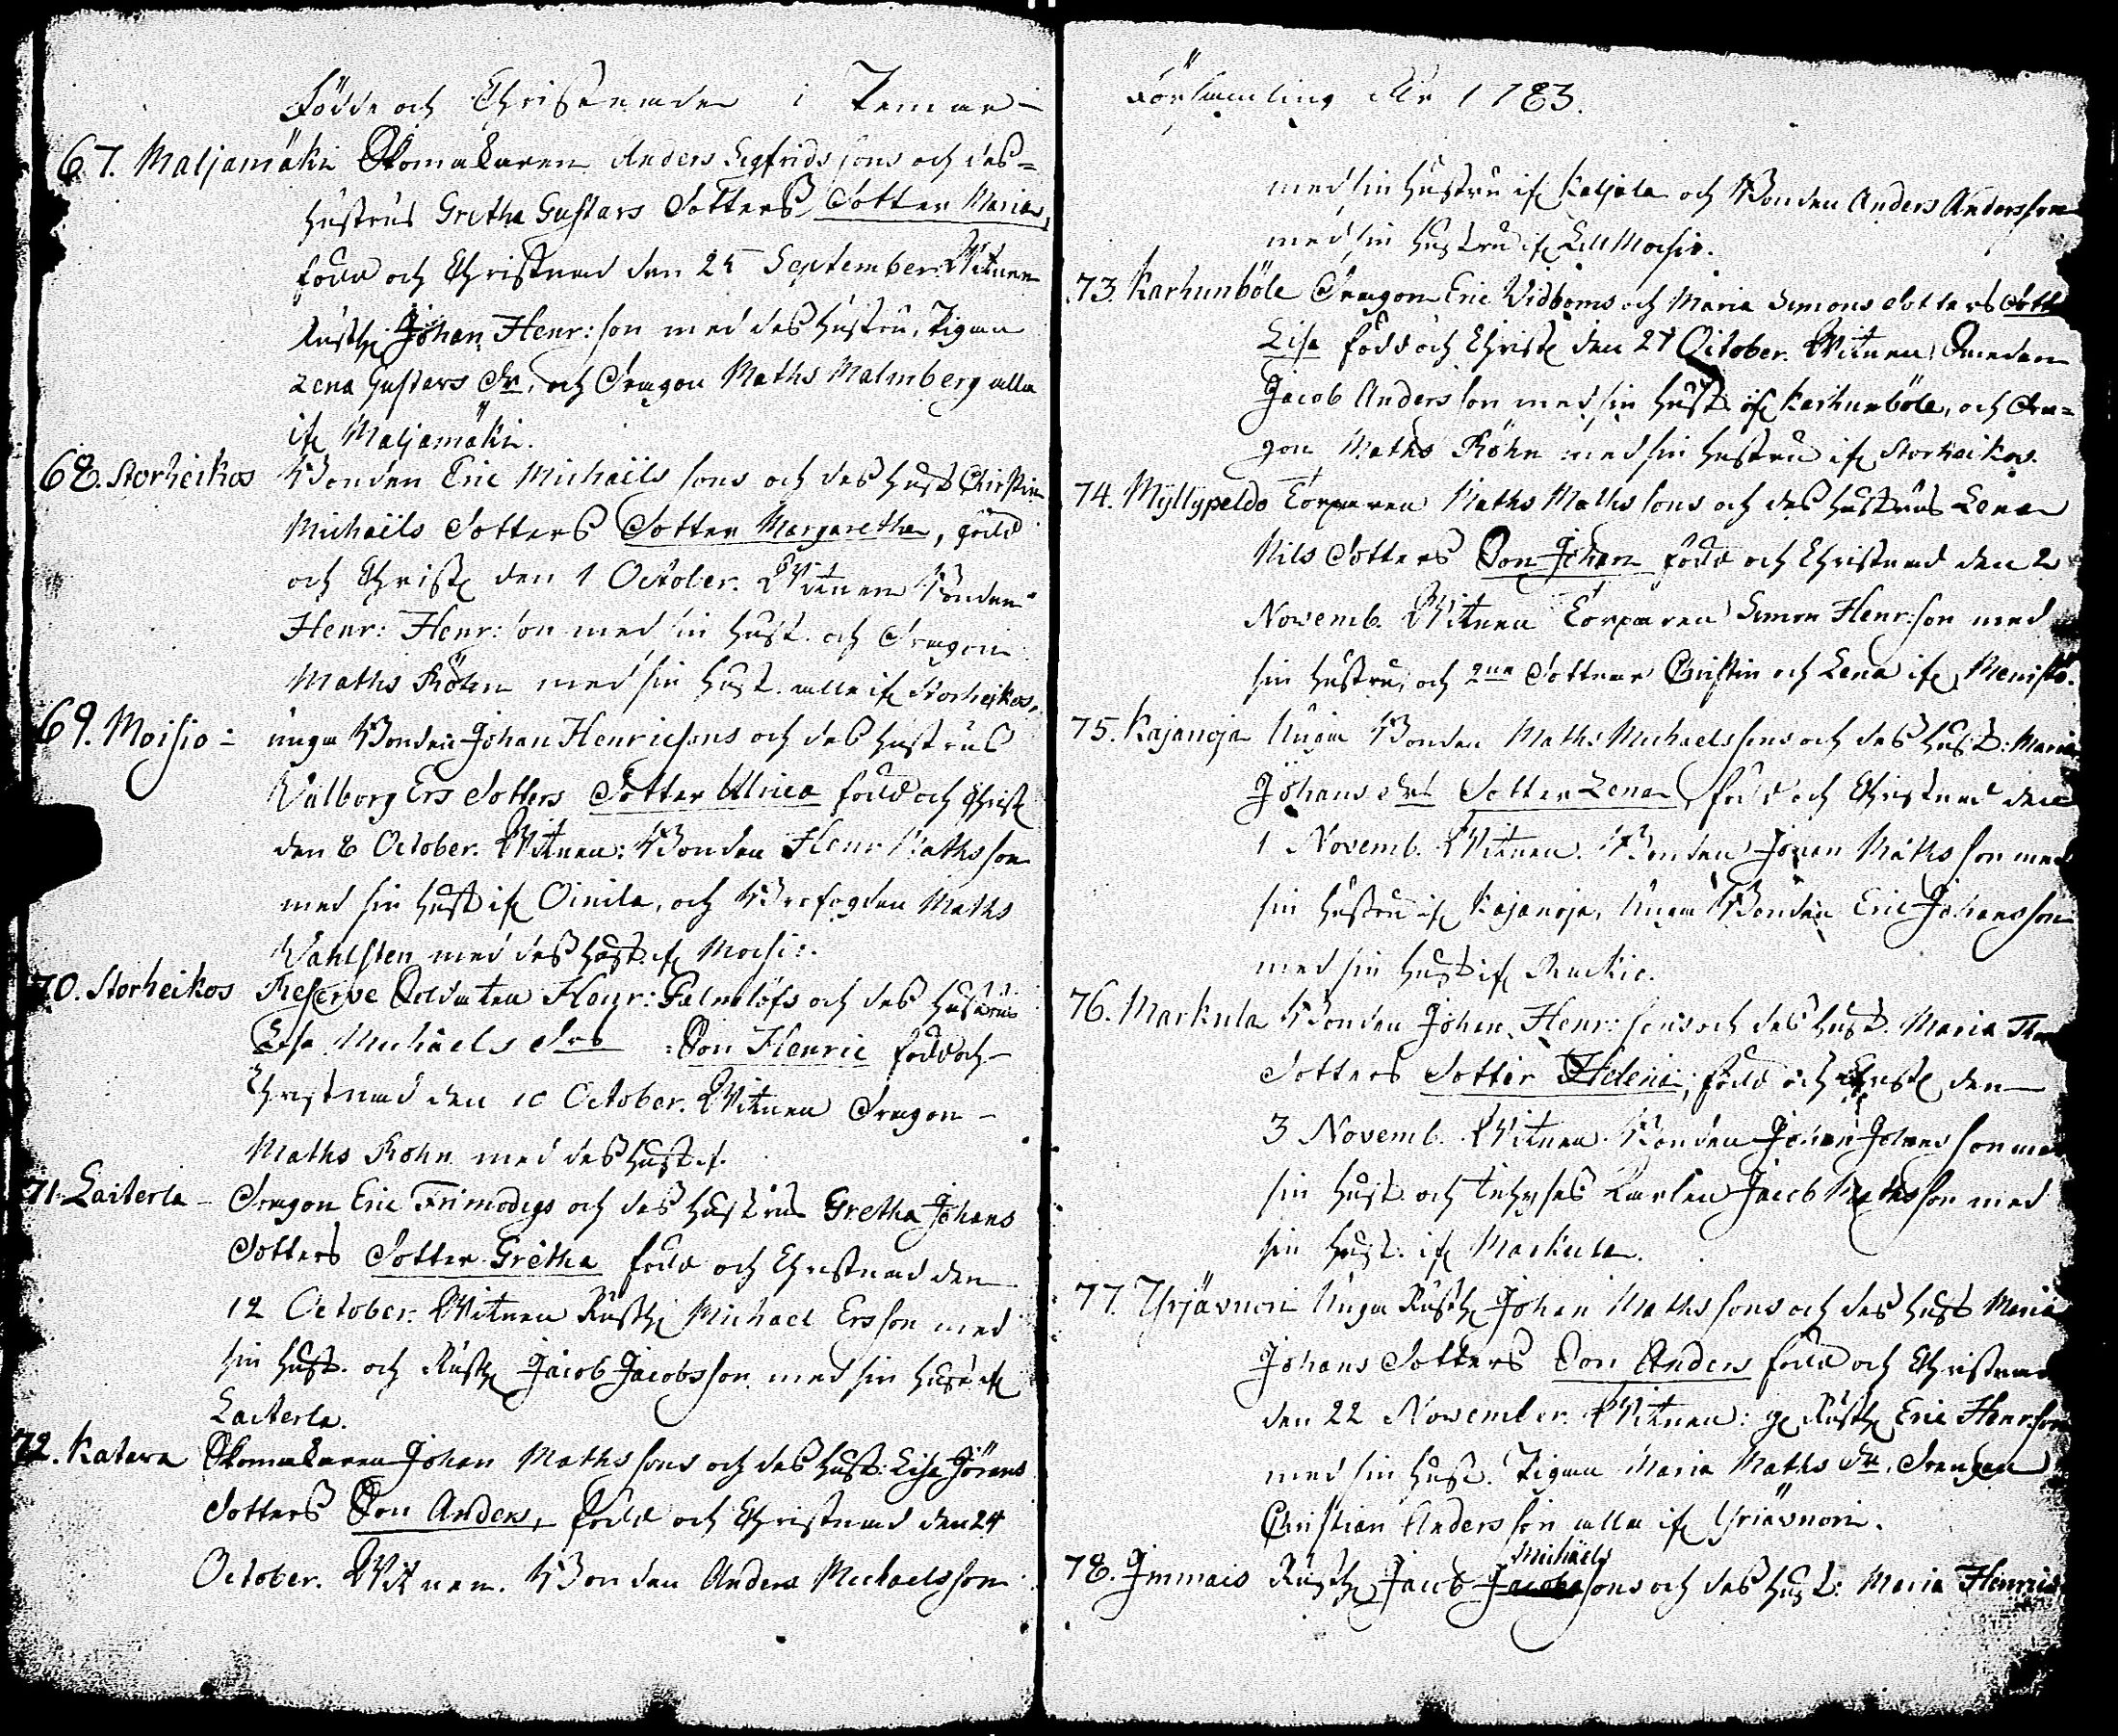 Födde och Christnade i Kemmar-
67. Maljamäki Skomakaren Anders Sigfrids sons och des=
hustrus Gretha Gustavs dotters dotter Maria,
född och Christnad den 25 September. Witnen
Rusth. Johan Henr: son med des hustru, Pigan
Lena Gustavs dr, och Dragon Maths Malmberg alla
if. Maljamäki.
68. Storheikos Bonden Eric Michaëls sons och des hust Christin
Michaëls dotters dotter Margaretha, född
och Christ. den 1 October. Witnen Bonden
Henr: Henr: son med sin hust. och Dragon
Maths Röhn med sin hust. alla if. Storheikos.
69. Moisio - unga Bonden Johan Henricsons och des hustrus
Walborg Ers dotters dotter Ulrica född och Christ.
den 8 October. Witnen: Bonden Henr Mathsson
med sin hust if. Oinila, och Brofogden Maths
Wahlsten med des hust. if. Moisio.
70. Storheikos Reserve Soldaten Henr: Palmlöfs och des hustrus
Lisa Michaels drs Son Henric född och
Christnad den 10 October. Witnen Dragon
Maths Röhn med des hust if.
71. Laiterla - Dragon Eric Frimodigs och des hustrus Gretha Johans
dotters dotter Gretha född och Christnad den
12 October. Witnen Rusth. Michael Ersson med
sin hust. och Rusth. Jacob Jacobsson med sin hust if.
Laiterla.
72. Katara Skomakaren Johan Maths sons och des hust: Lisa Jörans
dotters Son Anders, född och Christnad den 24
October. Witnen. Bonden Anders Michaelsson
Församling År 1783.
med sin hustru if. Katjala och Bonden Anders Andersson
med sin hustru if. Lill Moisio.
73. Karhunböle Dragon Eric Widboms och Maria Simons dotters dott
Lisa född och Christ. den 27 October. Witnen, Smeden
Jacob Andersson med sin hust. if. Karhunböle, och Dra=
gon Maths Röhn med sin hustru if. Storheikos.
74. Myllypeldo Torparen Maths Maths sons och des hustrus Lena
Nils dotters Son Johan född och Christnad den 2
Novemb. Witnen Torparen Simon Henr: son med
sin hustru, och 2ne döttrar Christin och Lena if.
75. Kajanoja Unga Bonden Maths Michaels sons och des hust: Maria
Johans drs dotter Lena, född och Christnad den
1 Novemb. Witnen. Bonden Johan Mathsson med
sin hustru if. Kajanoja, Unga Bonden Eric Johansson
med sin hust if.
76. Markula Bonden Johan Henr: sons och des hust. Maria
dotters dotter Helena, född och Christ. den
3 Novemb. Witnen. Bonden Johan Johansson med
sin hust och Inhyses Karlen Jacob Mathsson med
sin hust. if. Markula.
77. Yrjäsnori Unga Rusth. Johan Maths sons och des hust Maria
Johans dotters Son Anders född och Christnad
den 22 November. Witnen: g. Rusth. Eric Henr: son
med sin hust. Pigan Maria Maths dr. Drengen
Christian Andersson alla if. Yriäsnori.
78. Immais Rusth. Jacob Michaëls sons och des hust: Maria Henrics